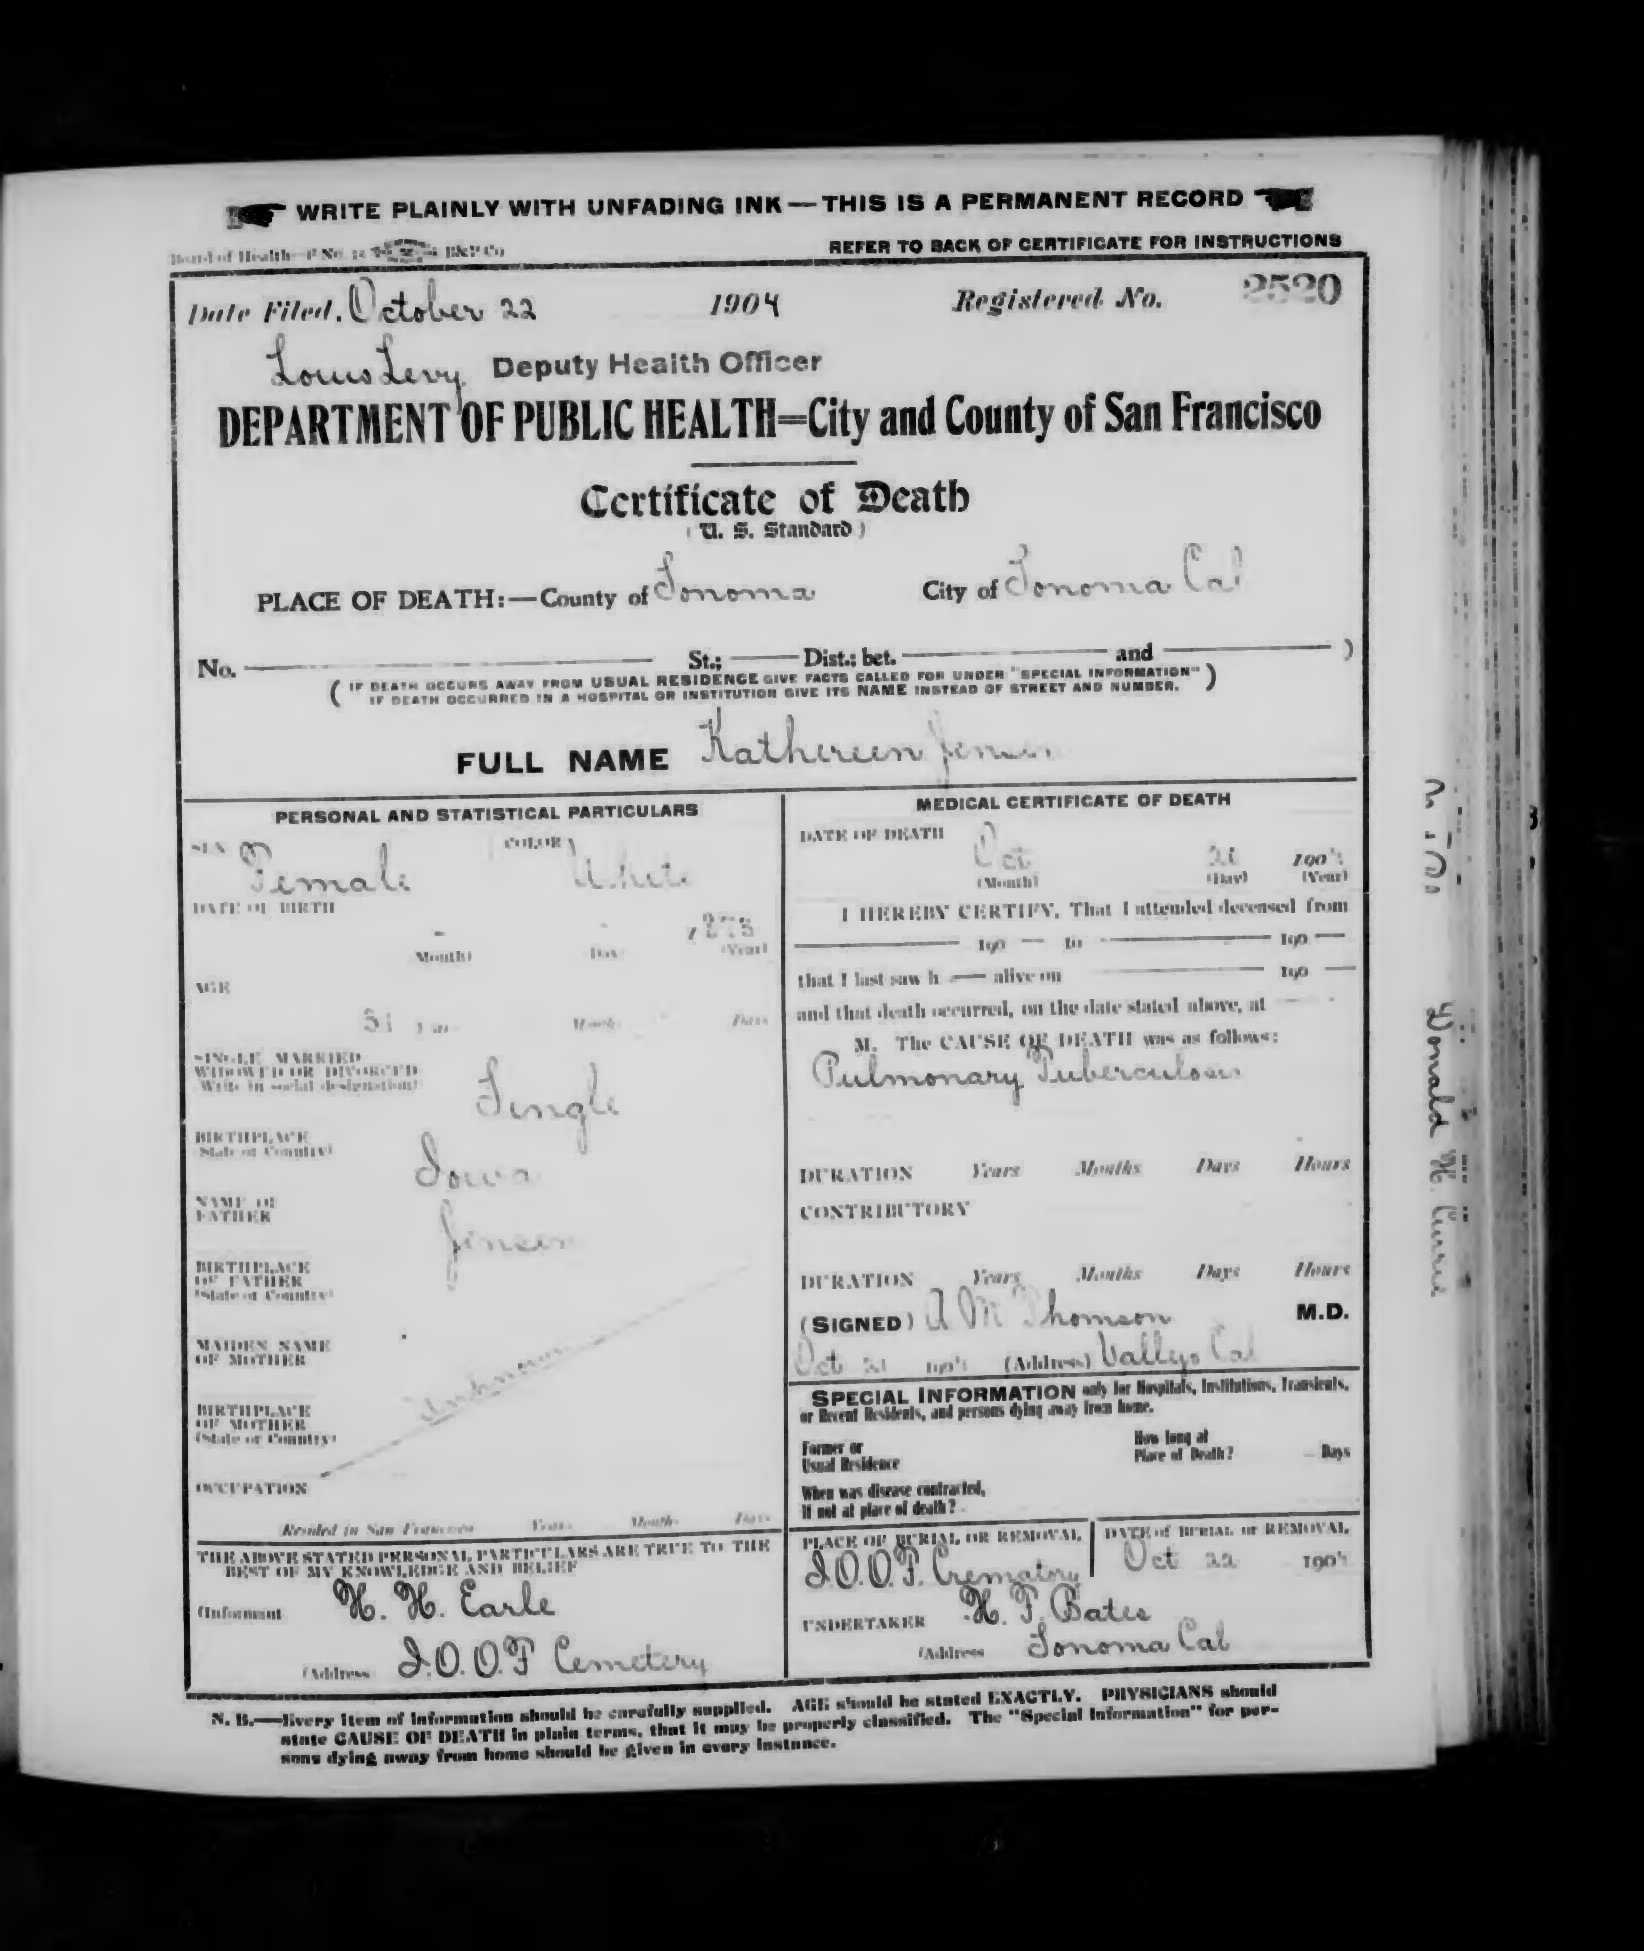 WRITE PLAINLY WITH UNFADING INK — THIS IS A PERMANENT RECORD
Board of Health—F No. B&P Co
REFER TO BACK OF CERTIFICATE FOR INSTRUCTIONS
Date Filed. October 22 1904 Registered No. 2520
Louis Levy Deputy Health Officer
DEPARTMENT OF PUBLIC HEALTH=City and County of San Francisco
Certificate of Death
(U. S. Standard)
PLACE OF DEATH:—County of Sonoma City of Sonoma Cal
No. St.; Dist.; bet. and )
( IF DEATH OCCURS AWAY FROM USUAL RESIDENCE GIVE FACTS CALLED FOR UNDER "SPECIAL INFORMATION" )
IF DEATH OCCURRED IN A HOSPITAL OR INSTITUTION GIVE ITS NAME INSTEAD OF STREET AND NUMBER.
FULL NAME Kathereen Jensen
PERSONAL AND STATISTICAL PARTICULARS
SEX Female COLOR White
DATE OF BIRTH
1873
(Month) (Day) (Year)
AGE
31 Years Months Days
SINGLE MARRIED
WIDOWED OR DIVORCED
(Write in social designation)
Single
BIRTHPLACE
(State or Country)
Iowa
NAME OF
FATHER
Jensen
BIRTHPLACE
OF FATHER
(State or Country)
MAIDEN NAME
OF MOTHER
Unknown
BIRTHPLACE
OF MOTHER
(State or Country)
OCCUPATION
Resided in San Francisco Years Months Days
THE ABOVE STATED PERSONAL PARTICULARS ARE TRUE TO THE
BEST OF MY KNOWLEDGE AND BELIEF
(Informant H. H. Earle
(Address I.O.O.F Cemetery
MEDICAL CERTIFICATE OF DEATH
DATE OF DEATH
Oct 21 1904
(Month) (Day) (Year)
I HEREBY CERTIFY, That I attended deceased from
190 to 190
that I last saw h alive on 190
and that death occurred, on the date stated above, at
M. The CAUSE OF DEATH was as follows:
Pulmonary Tuberculosis
DURATION Years Months Days Hours
CONTRIBUTORY
DURATION Years Months Days Hours
(SIGNED) A M Thomson M.D.
Oct 21 1904 (Address) Cal
SPECIAL INFORMATION only for Hospitals, Institutions, Transients,
or Recent Residents, and persons dying away from home.
Former or
Usual Residence
How long at
Place of Death? Days
When was disease contracted,
If not at place of death?
PLACE OF BURIAL OR REMOVAL
I.O.O.F. Crematory
DATE of BURIAL or REMOVAL
Oct 22 1904
UNDERTAKER H. F. Bates
(Address Sonoma Cal
N. B.—Every item of information should be carefully supplied. AGE should be stated EXACTLY. PHYSICIANS should
state CAUSE OF DEATH in plain terms, that it may be properly classified. The "Special Information" for per-
sons dying away from home should be given in every instance.
Donald H. Currie